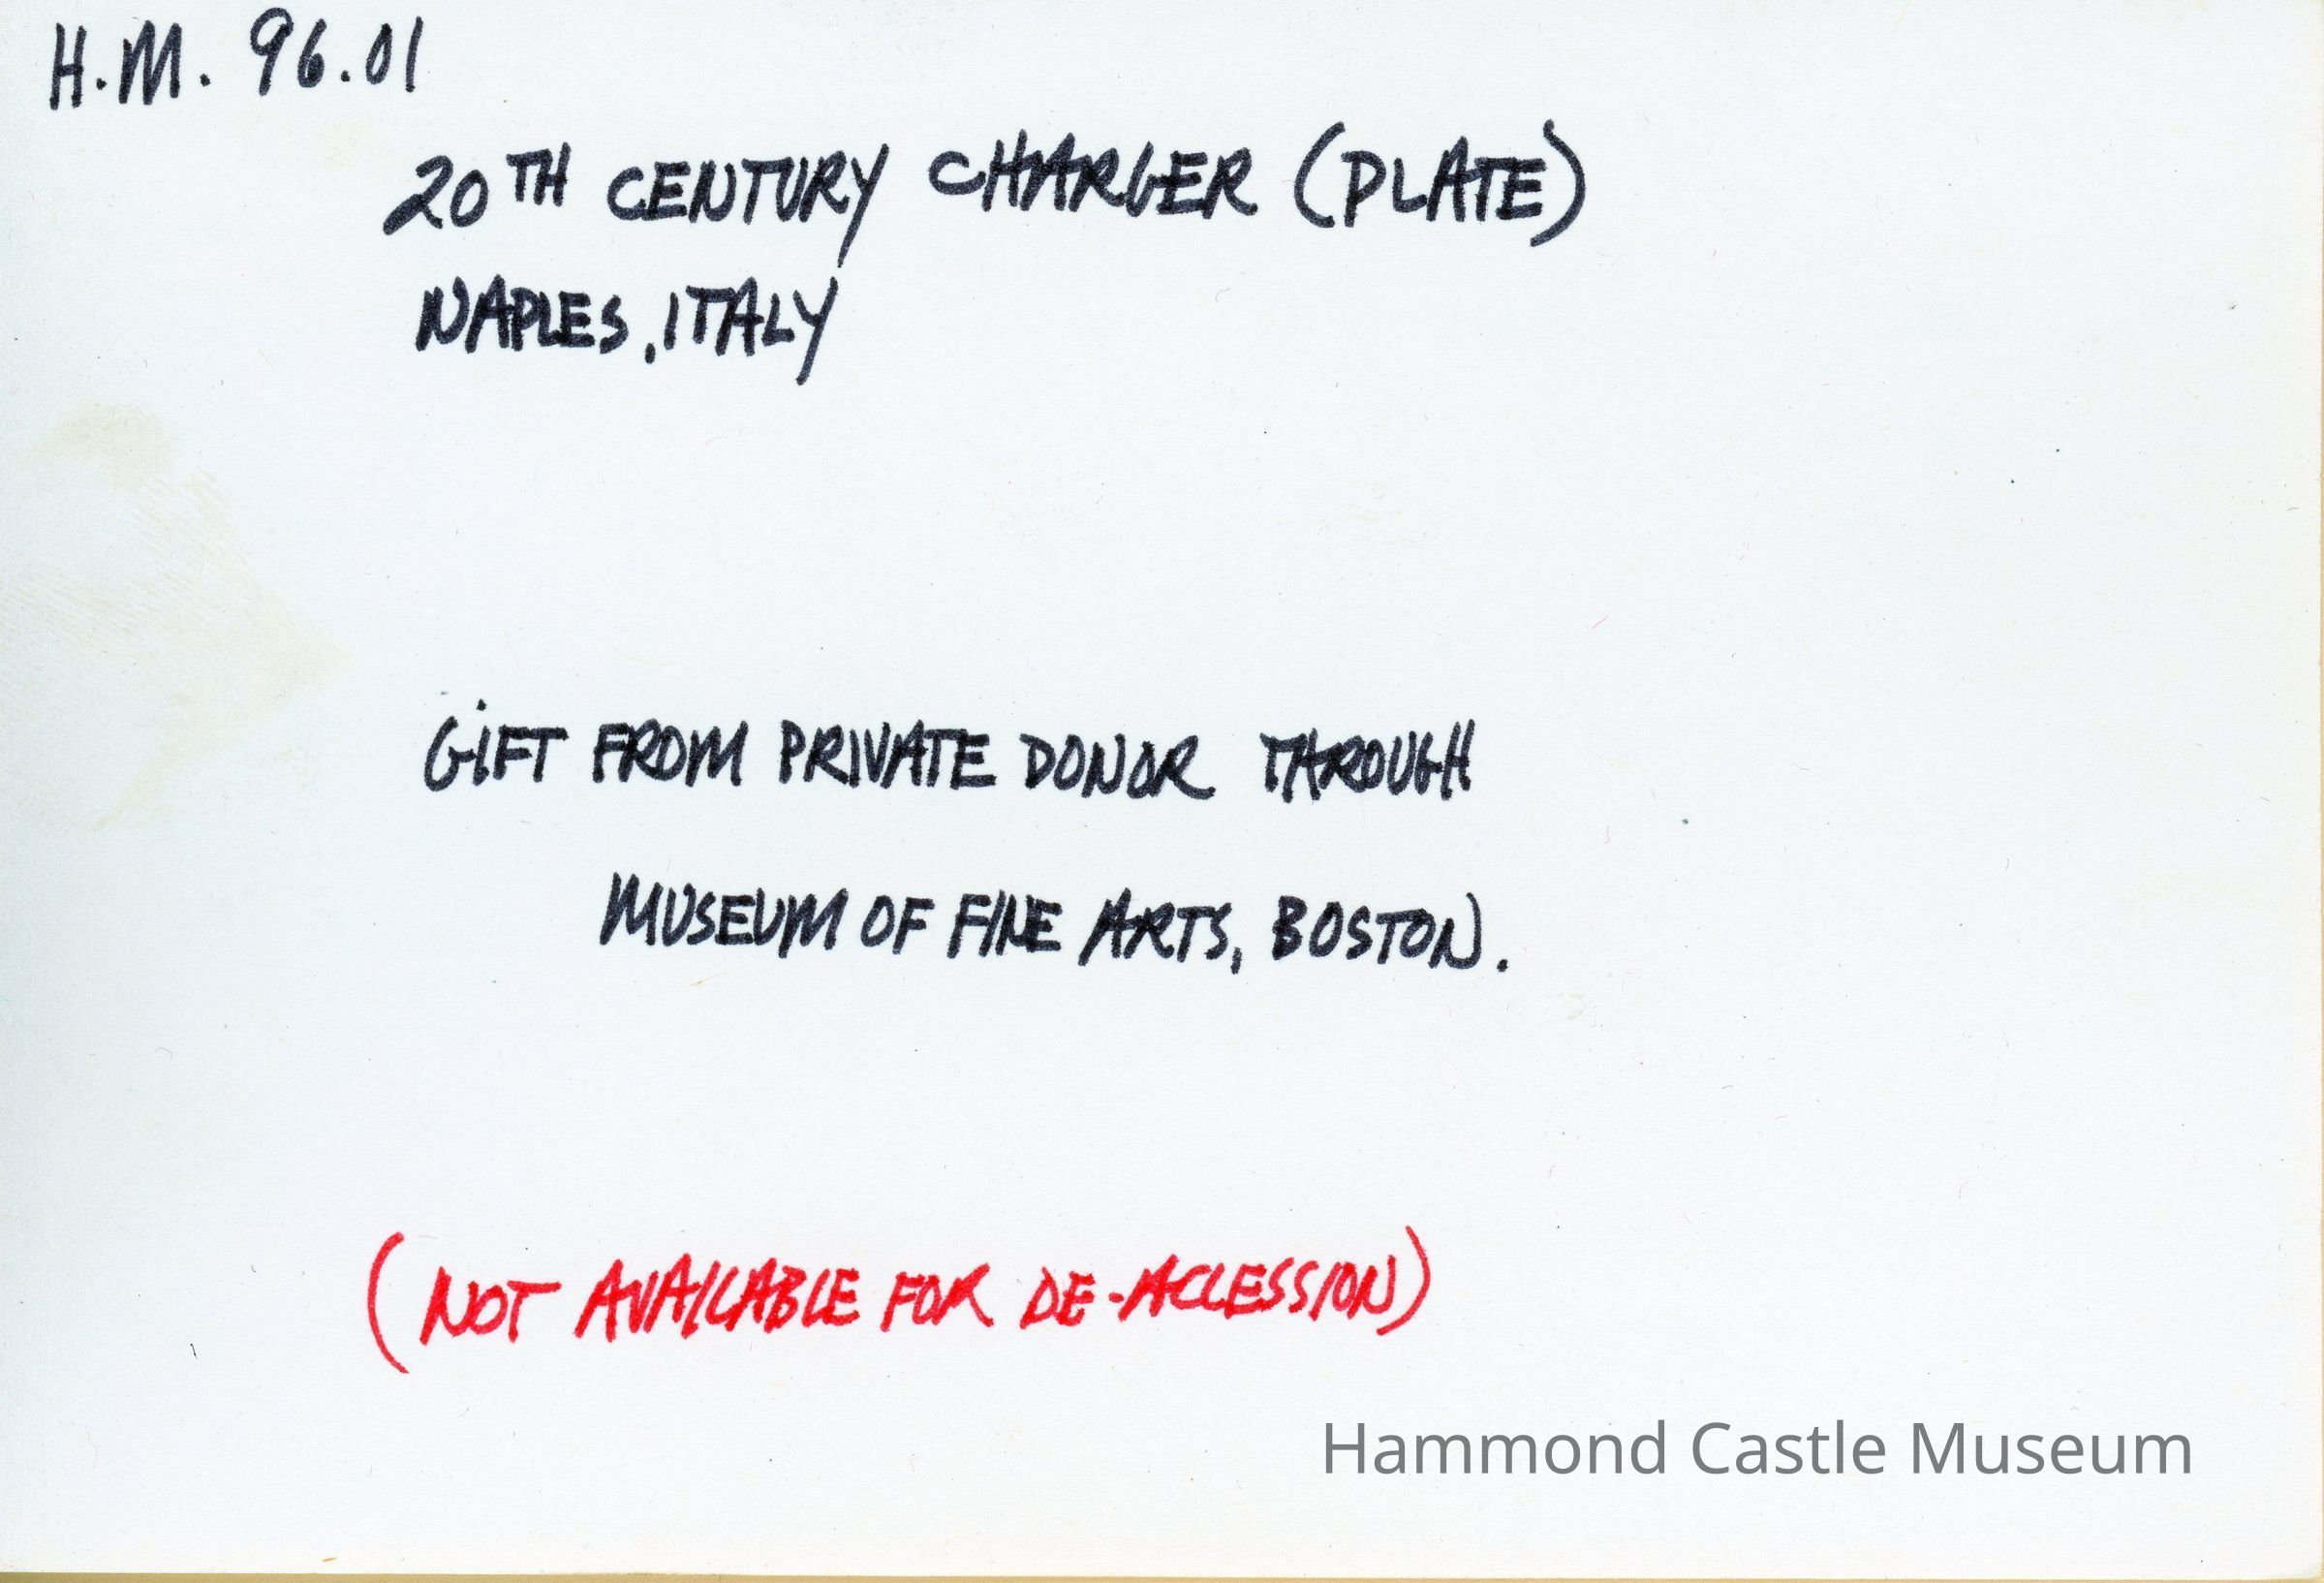 H.M. 96.01
20TH CENTURY CHARGER (PLATE)
NAPLES, ITALY
GIFT FROM PRIVATE DONOR THROUGH
MUSEUM OF FINE ARTS, BOSTON.
(NOT AVAILABLE FOR DE-ACCESSION)
Hammond Castle Museum